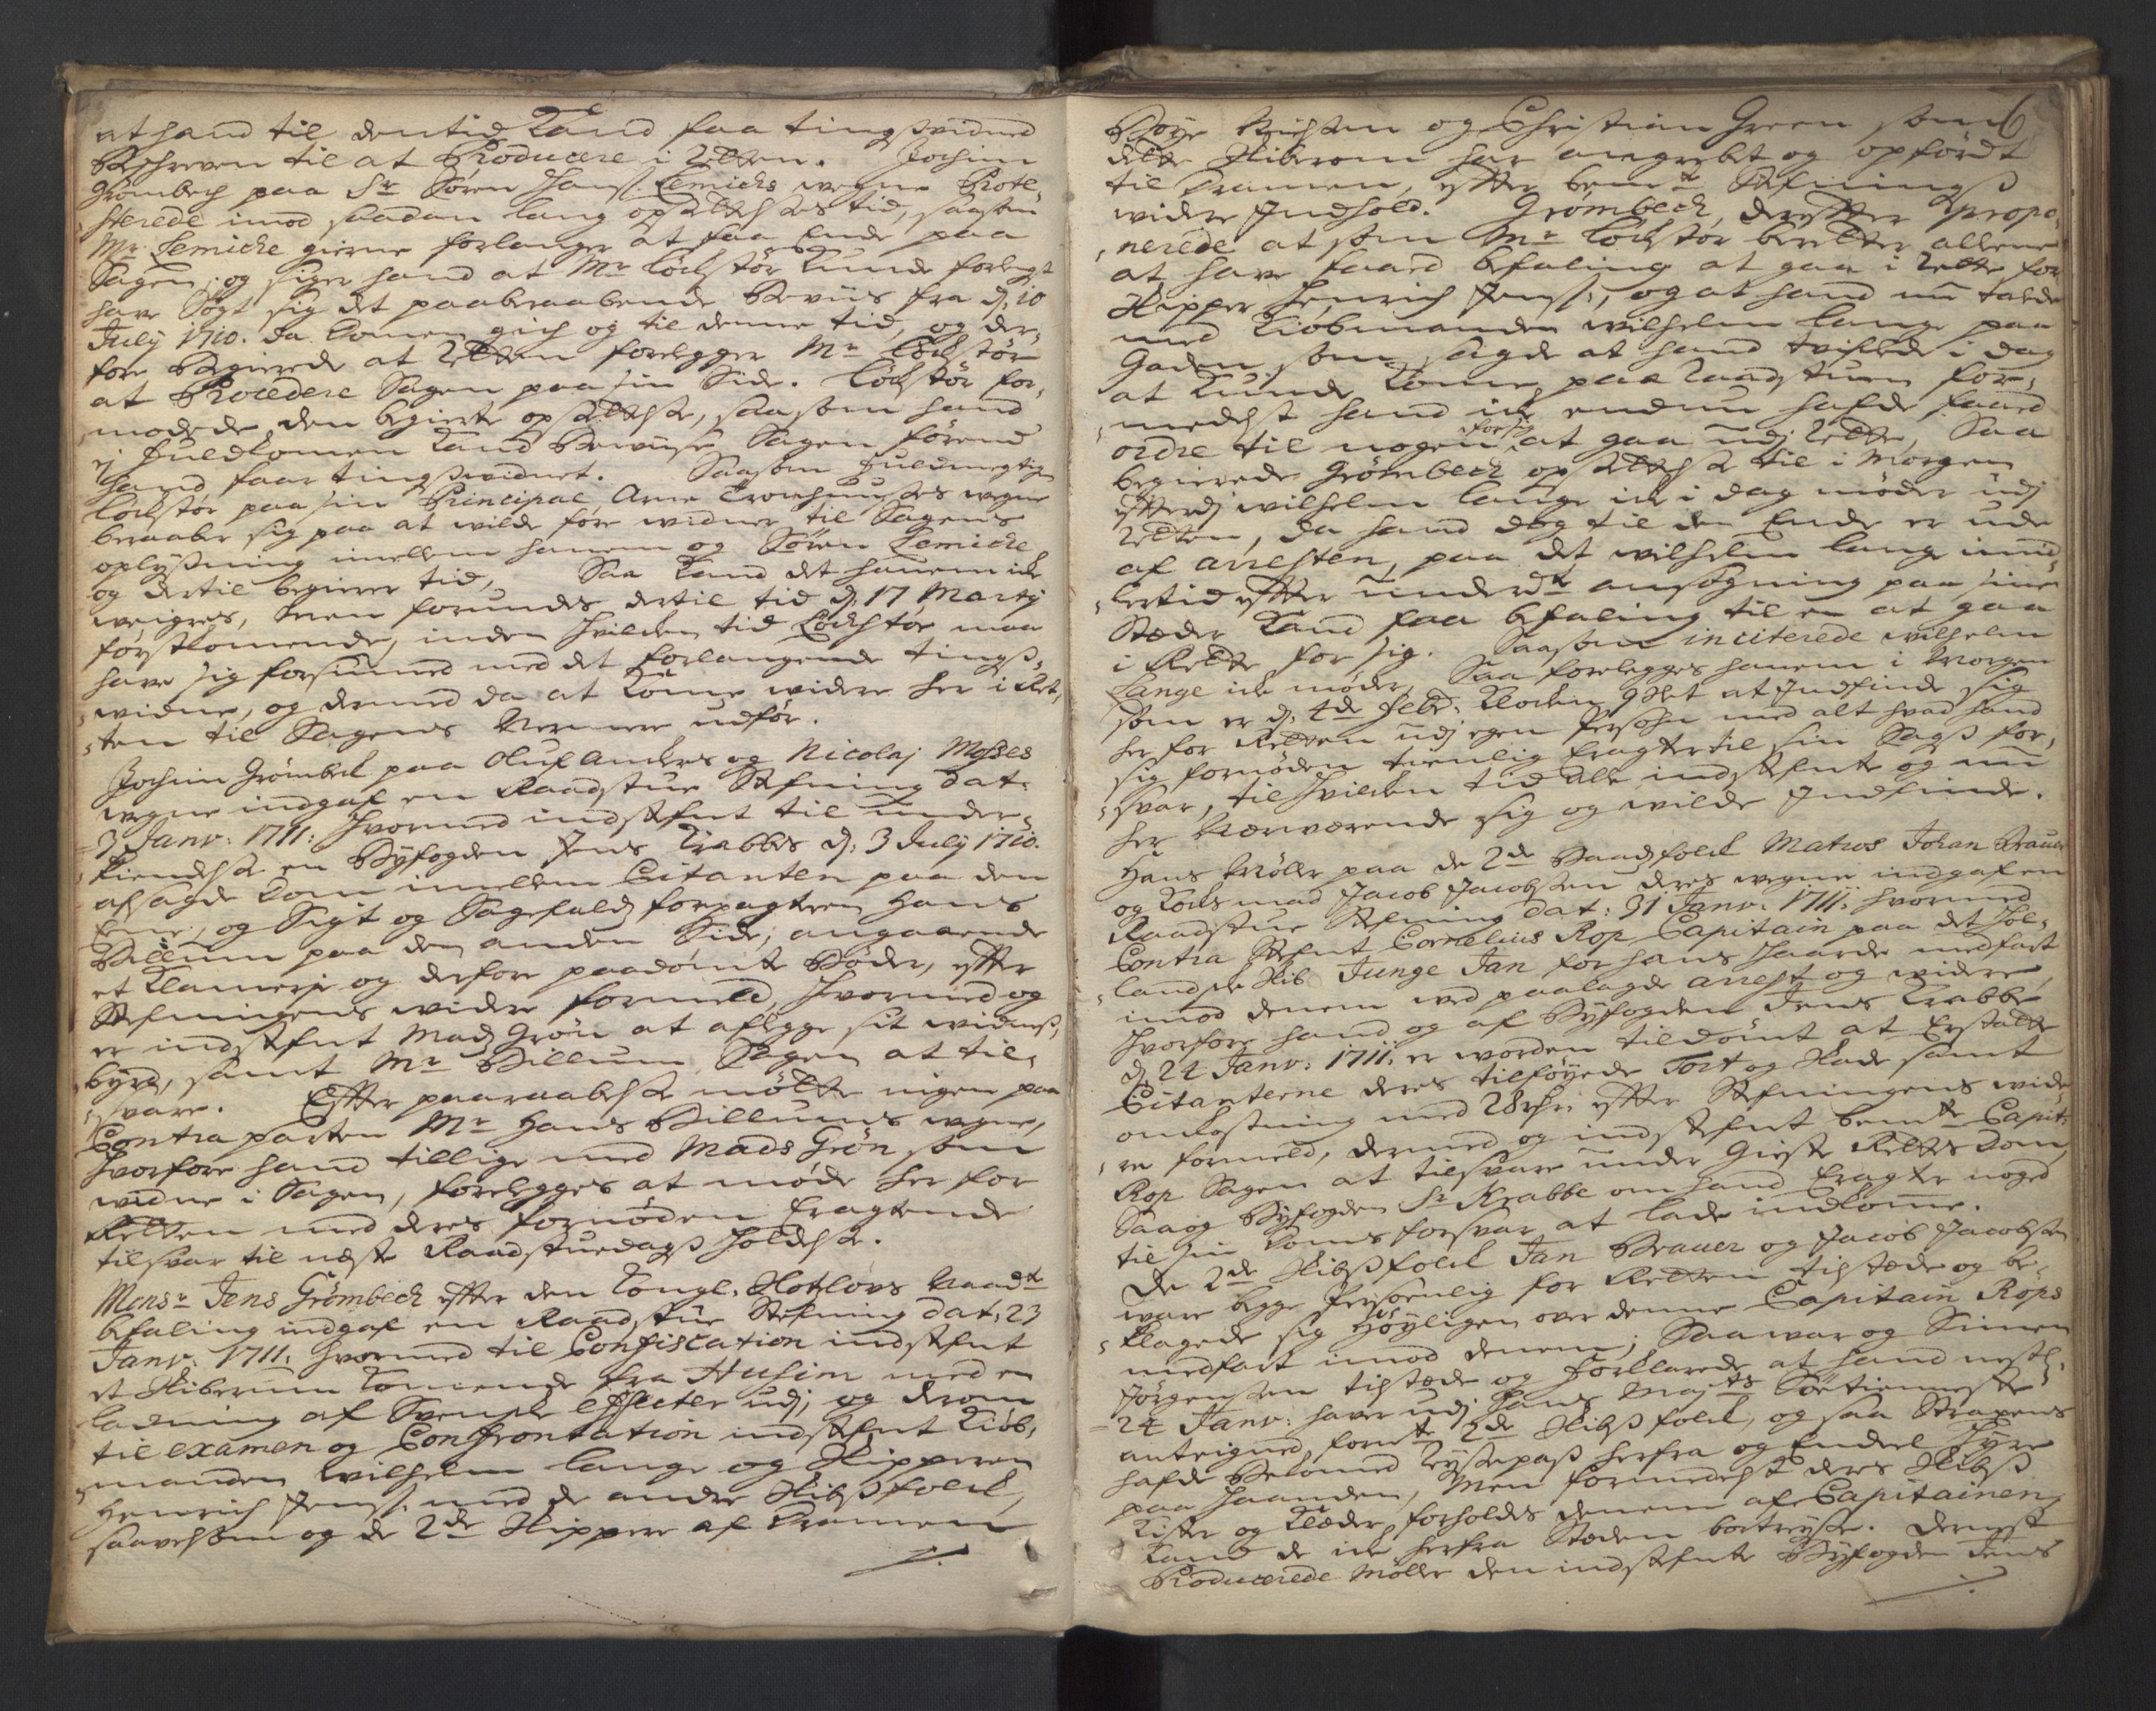 at hand til dentid Kand faa tingsvidned
Beschreven til at Producere i Retten. Jochim
Grømbech paa Sr Søren Hanss. Lemiches wegne Prote-
sterede imod saadan lang opsettelses tid, saasom
Mr. Lemiche gierne forlanger at faa Ende paa
Sagen, og siger hand at Mr Lockstør Kunde forlengst
have Søgt sig det paaberaabende Beviis fra d. 10
July 1710. da Domen gich og til denne tid, og der-
fore Begierede at Retten forelegger Mr Lockstør
at Procedere Sagen paa sin Side. Lockstør for-
modede den begierte opsettelse, saasom hand
ej fuldkomen Kand Beviise Sagen førend
hand faar tingsvidnet. Saasom fuldmegtigen
Lockstør paa sin Principal Arne wegne
beraaber sig paa at wilde føre widner til Sagens
oplysning imellem hanem og Søren Lemiche
og dertil begierer tid, Saa Kand det hanem icke
weigres, men forundes dertil tid d. 17 Martij
førstkomende, inden hvilken tid Lockstør maa
have sig forsiuned med det forlangende tings-
widne, og dermed da at Kome widere her i Ret-
ten til Sagens Nermere udfør.
Jochim Grømbech paa Oluf Anders og Nicolaj Mosses
wegne indgaf en Raadstue Stefning dat:
3 Janv: 1711: hvormed indstefnt til under-
kiendelse en Byfogden Jens Krabbes d: 3 July 1710.
afsagde Dom imellem Citanten paa den
Ene, og Sigt og Sagefalds forpagteren Hans
Billum paa den anden Side, angaaende
et Klamerje og derfore paadømte Bøder, efter
Stefningens widere formeld, hvormed og
er indstefnt Mads Grøn at aflegge sit widnes-
byrd, samt Mr Billum Sagen at til-
svare. Efter paaraabelse mødte ingen paa
Contraparten Mr Hans Billums wegne,
hvorfore hand tillige med Mads Grøn som
widne i Sagen, forelegges at møde her for
Retten med deres fornøden Eragtende
tilsvar til næste Raadstuedags holdelse.
Monsr Jens Grømbech efter den Kongl. Slotslovs Naadte
befaling indgaf en Raadstue Stefning dat: 23
Janv: 1711. hvormed til Confiscation indstefnt
et Skiberum Komende fra Husim med en
ladning af Svenske Effecter udj, og derom
til examen og Confrontation indstefnt Kiøb-
manden Wilhelm Lange og Skipperen
Henrich Jenss. med de andre Skibsfolck,
saavelsom og de 2de Skippere af Dramen
Boye Nielsen og Christian Green som 6
dette Skiberom har angrebet og opført
til Dramen, efter bemte Stefnings
widere Indhold. Grømbech, derefter propo-
nerede at som Mr Lockstør beretter allene
at have faaed befaling at gaa i Rette for
Skipper Henrich Jenss:, og at hand nu talde
med Kiøbmanden Wilhelm Lange paa
Gaden, som sagde at hand tviflede i dag
at Kunde Kome paa Raadstuen for-
medelst hand icke endnu hafde faaed
ordre til nogen for sig at gaa udj Rette, Saa
begierede Grømbech opsettelse til i Morgen
efterdj Wilhelm Lange icke i dag møder udj
Retten, da hand dog til den Ende er ude
af arresten, paa det Wilhelm Lange imid-
lertid efter underdte ansøgning paa sine
Stæder Kand faa befaling til en at gaa
i Rette for sig. Saasom inciterede Wilhelm
Lange icke møder, Saa forelegges hanem i Morgen
som er d: 4de Febr: Klocken 9 Slet at Indfinde sig
her for Retten udj egen Persohn med alt hvad hand
sig fornøden tienlig Eragter til sin Sags for-
svar, til hvilcken tid alle indstefnte og nu
her Nærværende sig og wilde Indfinde.
Hans Møller paa de 2de Baadsfolck Matros Johan Brauer
og Kocks mad Jacob Jacobsen deres wegne indgaf en
Raadstue Stefning dat: 31 Janv: 1711: hvormed
Contra Stefnt Cornelius Rop Capitain paa det Hol-
landske Skib Junge Jan for hans haarde medfart
imod denem med paalagde arrest og widere,
hvorfore hand og af Byfogden Jens Krabbe
d. 24 Janv: 1711: er worden tildømt at Erstatte
Citanterne deres tilføyede Tort og Skade samt
omkostning med 28 rdr: efter Stefningens wide-
re formeld, dermed og indstefnt bemte Capit:
Rop Sagen at tilsvare under Gieste Rettes Dom,
Saa og Byfogden Sr Krabbe om hand Eragter noged
til sin Doms forsvar at lade indkome.
De 2de Skibsfolck Jan Brauer og Jacob Jacobsen
ware begge Personlig for Retten tilstæde og be-
klagede sig Høyligen over denne Capitain Rops
medfart imod denem; Saa war og Simen
Jørgensen tilstæde og forklarede at hand nestl.
24 Janv: haver udj Hans Mayts Søe tienneste
antegned formte 2de Skibsfolck, og saa Strax
hafde Bekomed Reysepas herfra og Endeel Hyre
paa haanden, Men formedelst deres Skibs
Kister og Klæder forholdes denem af Capitainen,
Kand de icke herfra Stæden bortreyse. Dernest
Producerede Møller den indstefnte Byfogden Jens